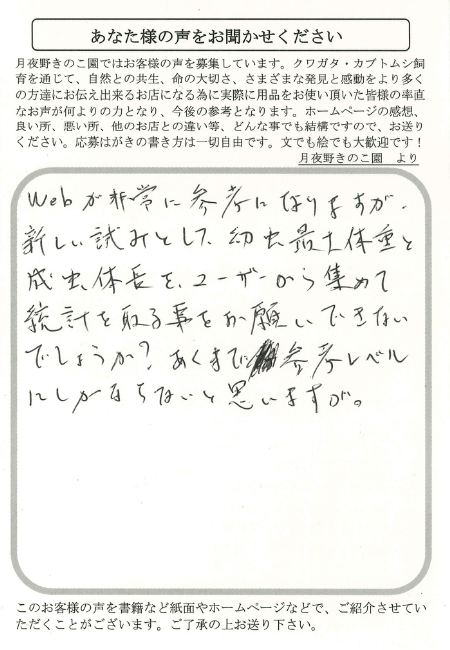 あなた様の声をお聞かせください
月夜野きのこ園ではお客様の声を募集しています。クワガタ・カブトムシ飼
育を通じて、自然との共生、命の大切さ、さまざまな発見と感動をより多く
の方達にお伝え出来るお店になる為に実際に用品をお使い頂いた皆様の率直
なお声が何よりの力となり、今後の参考となります。ホームページの感想、
良い所、悪い所、他のお店との違い等、どんな事でも結構ですので、お送り
ください。応募はがきの書き方は一切自由です。文でも絵でも大歓迎です！
月夜野きのこ園　より
Webが非常に参考になりますが、
新しい試みとして、幼虫最大体重と
成虫体長を、ユーザーから集めて
統計を取る事をお願いできない
でしょうか？あくまで参考レベル
にしかならないと思いますが。
このお客様の声を書籍など紙面やホームページなどで、ご紹介させてい
ただくことがございます。ご了承の上お送り下さい。